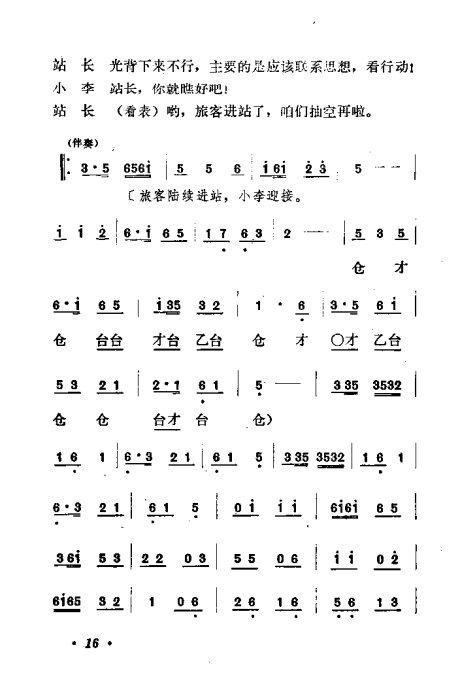 站 长 光背下来不行，主要的是应该联系思想，看行动！
小 李 站长，你就瞧好吧！
站 长 （看表）哟，旅客进站了，咱们抽空再啦。
（伴奏）
3·5 656i | 5 5 6 | i6i 23 | 5 — |
〔旅客陆续进站，小李迎接。
i i 2 | 6·i 65 | 17 63 | 2 — | 5 3 5 |
仓 才
6·i 65 | i35 32 | 1 · 6 | 3·5 6i |
仓 台台 才台 乙台 仓 才 〇才 乙台
53 21 | 2·1 61 | 5 — | 335 3532 |
仓 仓 台才 台 仓）
16 1 | 6·3 21 | 61 5 | 335 3532 | 16 1 |
6·3 21 | 61 5 | 0i ii | 6i6i 65 |
36i 53 | 22 03 | 55 06 | ii 02 |
6i65 32 | 1 06 | 26 16 | 56 13 |
· 16 ·